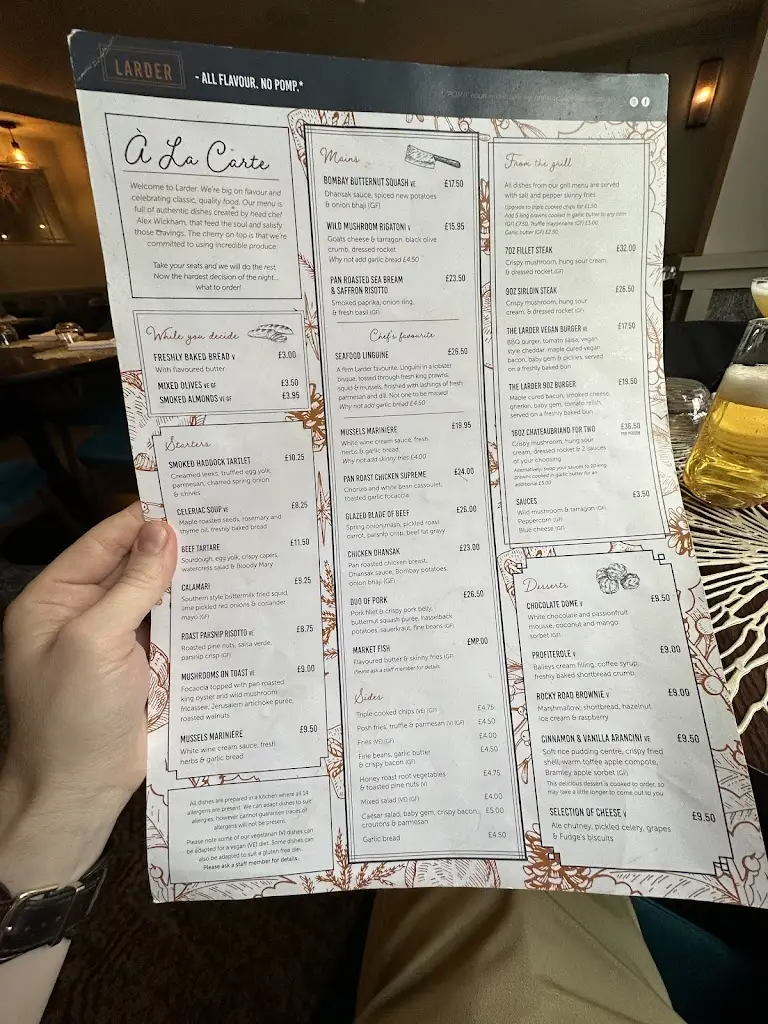 LARDER
- ALL FLAVOUR. NO POMP.*
À La Carte
Welcome to Larder. We're big on flavour and
celebrating classic, quality food. Our menu is
full of authentic dishes created by head chef
Alex Wickham, that feed the soul and satisfy
those cravings. The cherry on top is that we're
committed to using incredible produce.
Take your seats and we will do the rest.
Now the hardest decision of the night...
what to order!
While you decide
FRESHLY BAKED BREAD V £3.00
With flavoured butter
MIXED OLIVES VE GF £3.50
SMOKED ALMONDS VE GF £3.95
Starters
SMOKED HADDOCK TARTLET £10.25
Creamed leeks, truffled egg yolk,
parmesan, charred spring onion
& chives
CELERIAC SOUP VE £8.25
Maple roasted seeds, rosemary and
thyme oil, freshly baked bread
BEEF TARTARE £11.50
Sourdough, egg yolk, crispy capers,
watercress salad & Bloody Mary
CALAMARI £9.25
Southern style buttermilk fried squid,
lime pickled red onions & coriander
mayo (GF)
ROAST PARSNIP RISOTTO VE £8.75
Roasted pine nuts, salsa verde,
parsnip crisp (GF)
MUSHROOMS ON TOAST VE £9.00
Focaccia topped with pan roasted
king oyster and wild mushroom
fricassee, Jerusalem artichoke purée,
roasted walnuts
MUSSELS MARINIÈRE £9.50
White wine cream sauce, fresh
herbs & garlic bread
All dishes are prepared in a kitchen where all 14
allergens are present. We can adapt dishes to suit
allergies, however cannot guarantee traces of
allergens will not be present.
Please note some of our vegetarian (V) dishes can
be adapted for a vegan (VE) diet. Some dishes can
also be adapted to suit a gluten free diet.
Please ask a staff member for details.
Mains
BOMBAY BUTTERNUT SQUASH VE £17.50
Dhansak sauce, spiced new potatoes
& onion bhaji (GF)
WILD MUSHROOM RIGATONI V £15.95
Goats cheese & tarragon, black olive
crumb, dressed rocket
Why not add garlic bread £4.50
PAN ROASTED SEA BREAM £23.50
& SAFFRON RISOTTO
Smoked paprika, onion ring,
& fresh basil (GF)
Chef's favourite
SEAFOOD LINGUINE £26.50
A firm Larder favourite. Linguini in a lobster
bisque, tossed through fresh king prawns,
squid & mussels, finished with lashings of fresh
parmesan and dill. Not one to be missed!
Why not add garlic bread £4.50
MUSSELS MARINIÈRE £19.95
White wine cream sauce, fresh
herbs & garlic bread
Why not add skinny fries £4.00
PAN ROAST CHICKEN SUPREME £24.00
Chorizo and white bean cassoulet,
toasted garlic focaccia
GLAZED BLADE OF BEEF £26.00
Spring onion mash, pickled roast
carrot, parsnip crisp, beef fat gravy
CHICKEN DHANSAK £23.00
Pan roasted chicken breast,
Dhansak sauce, Bombay potatoes,
onion bhaji (GF)
DUO OF PORK £26.50
Pork fillet & crispy pork belly,
butternut squash purée, hasselback
potatoes, sauerkraut, fine beans (GF)
MARKET FISH £MP.00
Flavoured butter & skinny fries (GF)
Please ask a staff member for details
Sides
Triple cooked chips (VE) (GF) £4.75
Posh fries, truffle & parmesan (V) (GF) £4.50
Fries (VE) (GF) £4.00
Fine beans, garlic butter £4.50
& crispy bacon (GF)
Honey roast root vegetables £4.75
& toasted pine nuts (V)
Mixed salad (VE) (GF) £4.00
Caesar salad, baby gem, crispy bacon, £5.00
croutons & parmesan
Garlic bread £4.50
From the grill
All dishes from our grill menu are served
with salt and pepper skinny fries
Upgrade to triple cooked chips for £1.50
Add 5 king prawns cooked in garlic butter to any item
(GF) £7.50, Truffle mayonnaise (GF) £3.00
Garlic butter (GF) £2.50
7OZ FILLET STEAK £32.00
Crispy mushroom, hung sour cream,
& dressed rocket (GF)
9OZ SIRLOIN STEAK £26.50
Crispy mushroom, hung sour
cream, & dressed rocket (GF)
THE LARDER VEGAN BURGER VE £17.50
BBQ burger, tomato salsa, vegan
style cheddar, maple cured vegan
bacon, baby gem & pickles, served
on a freshly baked bun
THE LARDER 9OZ BURGER £19.50
Maple cured bacon, smoked cheese,
gherkin, baby gem, tomato relish,
served on a freshly baked bun
16OZ CHATEAUBRIAND FOR TWO £36.50
PER PERSON
Crispy mushroom, hung sour
cream, dressed rocket & 2 sauces
of your choosing
Alternatively, swap your sauces to 10 king
prawns cooked in garlic butter for an
additional £5.00
SAUCES £3.50
Wild mushroom & tarragon (GF)
Peppercorn (GF)
Blue cheese (GF)
Desserts
CHOCOLATE DOME V £9.50
White chocolate and passionfruit
mousse, coconut and mango
sorbet (GF)
PROFITEROLE V £9.00
Baileys cream filling, coffee syrup,
freshly baked shortbread crumb
ROCKY ROAD BROWNIE V £9.00
Marshmallow, shortbread, hazelnut
ice cream & raspberry
CINNAMON & VANILLA ARANCINI VE £9.50
Soft rice pudding centre, crispy fried
shell, warm toffee apple compote,
Bramley apple sorbet (GF)
This delicious dessert is cooked to order, so
may take a little longer to come out to you
SELECTION OF CHEESE V £9.50
Ale chutney, pickled celery, grapes
& Fudge's biscuits